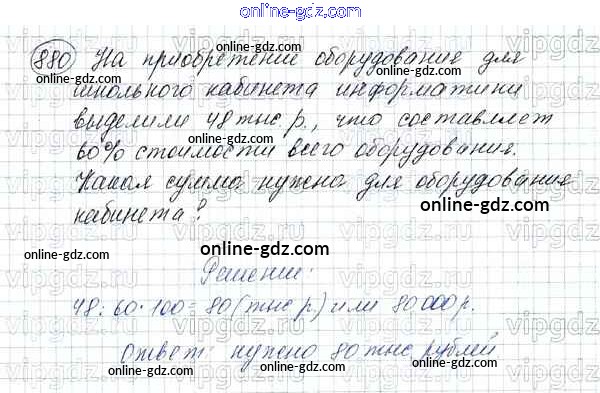 online-gdz.com
880 На приобретение оборудования для
online-gdz.com online-gdz.com
школьного кабинета информатики
выделили 48 тыс р., что составляет
online-gdz.com online-gdz.com
60% стоимости всего оборудования.
Какая сумма нужна для оборудования
online-gdz.com online-gdz.com
кабинета?
online-gdz.com
Решение:
online-gdz.com online-gdz.com
48:60·100=80(тыс р.) или 80000р.
online-gdz.com online-gdz.com
Ответ: нужно 80 тыс рублей
online-gdz.com